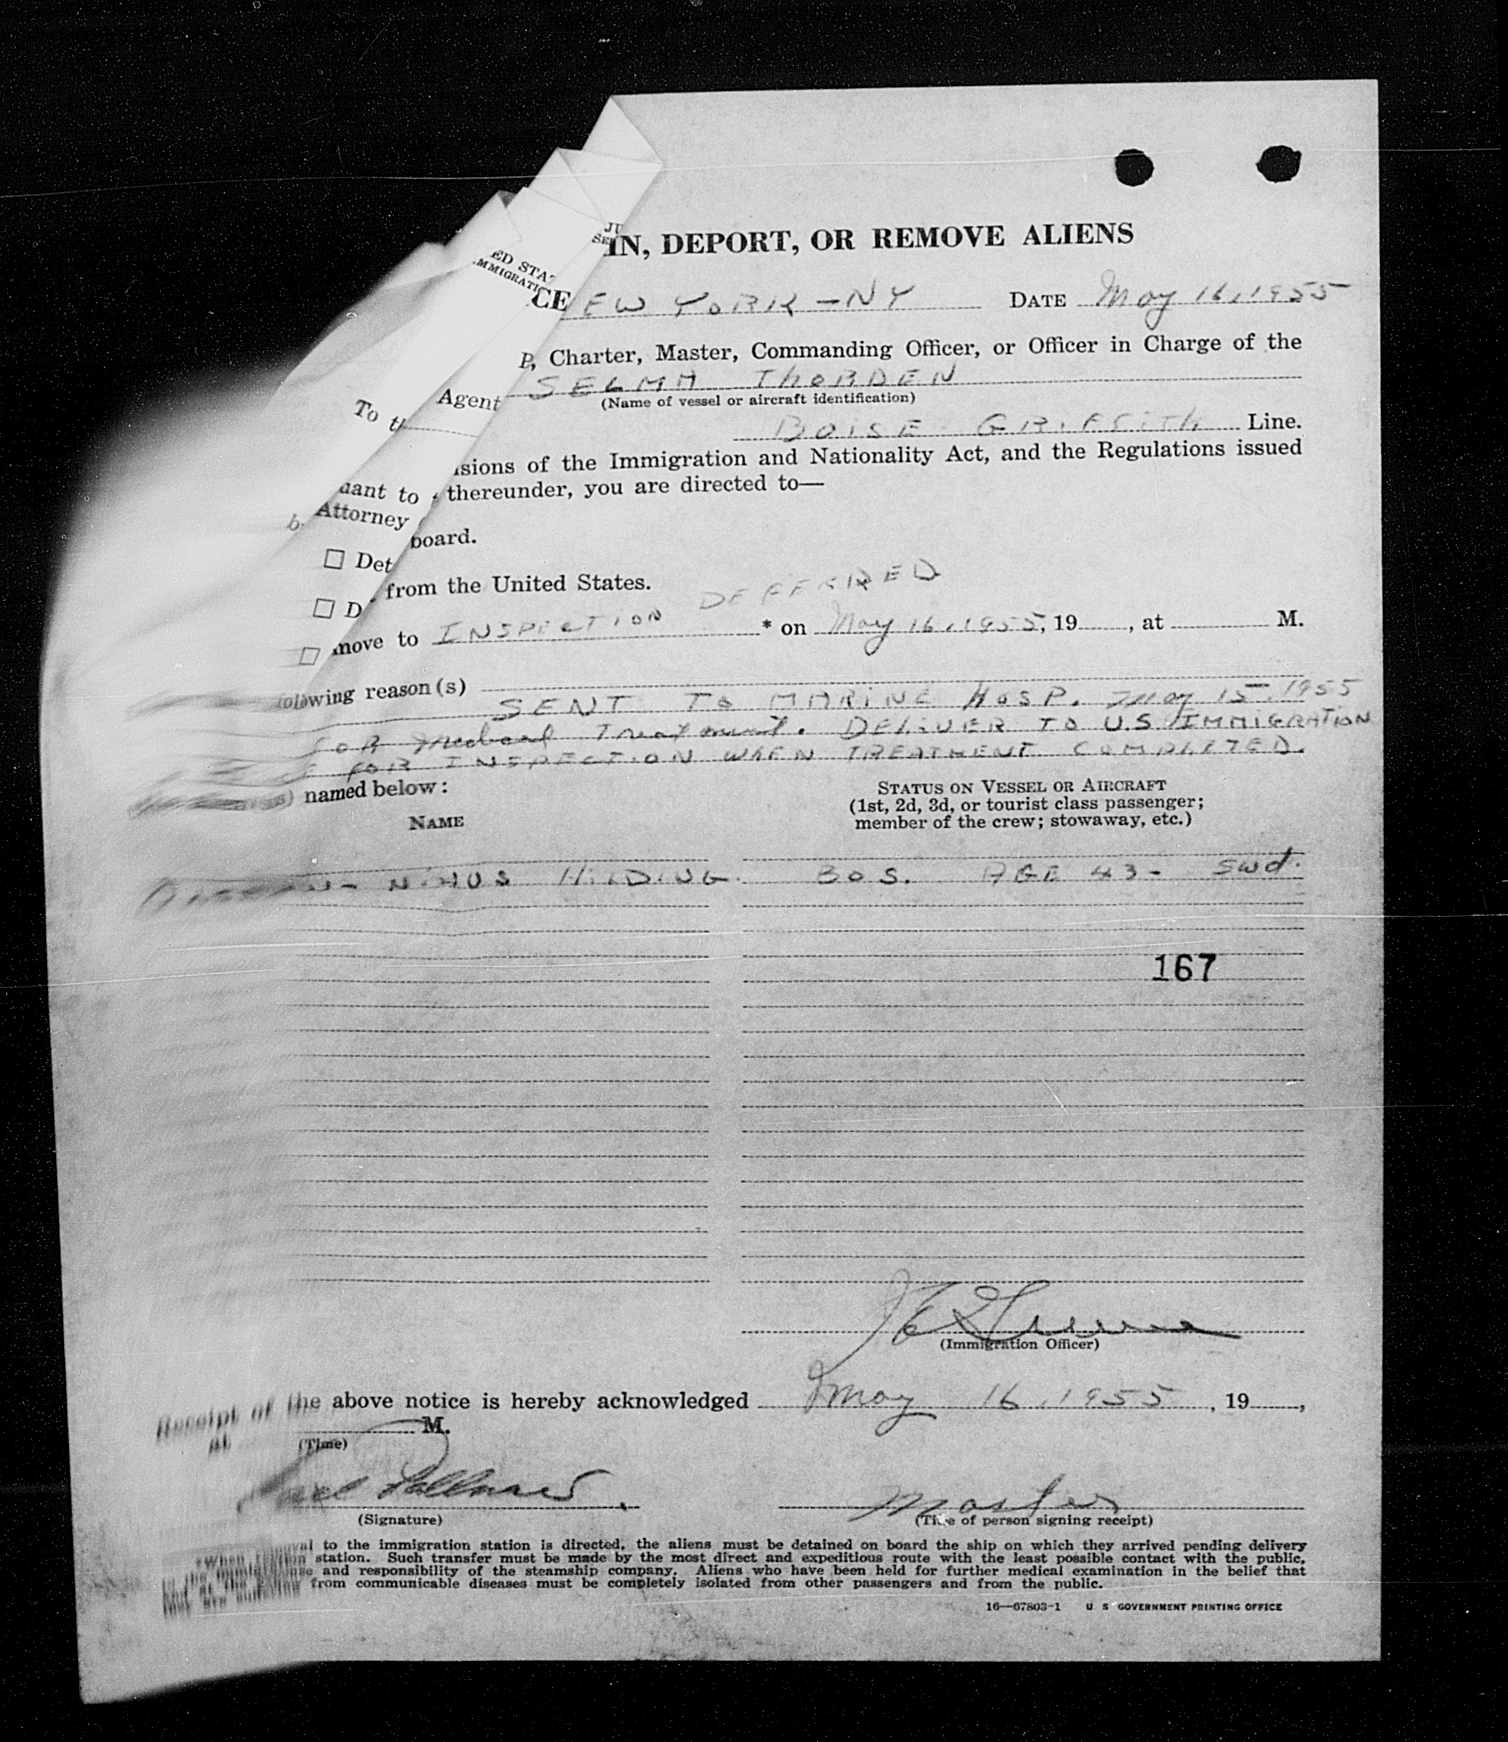 JU
SE
ED STA
MMIGRATI
IN, DEPORT, OR REMOVE ALIENS
CE EW YORK - NY DATE May 16, 1955
To th Agent P, Charter, Master, Commanding Officer, or Officer in Charge of the
SELMA THORDEN
(Name of vessel or aircraft identification)
BOISE GRIFFITH Line.
uant to isions of the Immigration and Nationality Act, and the Regulations issued
b Attorney thereunder, you are directed to—
☐ Det board.
☐ D from the United States.
☐ move to INSPECTION DEFERRED * on May 16, 1955, 19 , at M.
ollowing reason(s)
SENT TO MARINE HOSP. May 15, 1955
FOR Medical Treatment. DELIVER TO U.S. IMMIGRATION
FOR INSPECTION WHEN TREATMENT COMPLETED.
named below:
NAME
STATUS ON VESSEL OR AIRCRAFT
(1st, 2d, 3d, or tourist class passenger;
member of the crew; stowaway, etc.)
HILDING. BOS. AGE 43- Swd.
167
(Immigration Officer)
Receipt of the above notice is hereby acknowledged May 16, 1955, 19 ,
at M.
(Time)
Master
(Signature)
(Title of person signing receipt)
to the immigration station is directed, the aliens must be detained on board the ship on which they arrived pending delivery
station. Such transfer must be made by the most direct and expeditious route with the least possible contact with the public,
and responsibility of the steamship company. Aliens who have been held for further medical examination in the belief that
from communicable diseases must be completely isolated from other passengers and from the public.
16—67803-1 U. S. GOVERNMENT PRINTING OFFICE